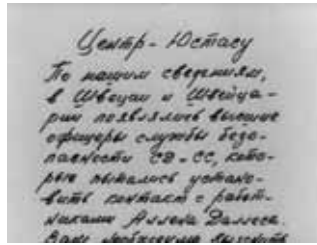 Центр - Юстасу
По нашим сведениям,
в Швеции и Швейца-
рии появлялись высшие
офицеры службы безо-
пасности СД-СС, кото-
рые пытались устано-
вить контакт с работ-
никами Аллена Даллеса.
Вам необходимо выяснить